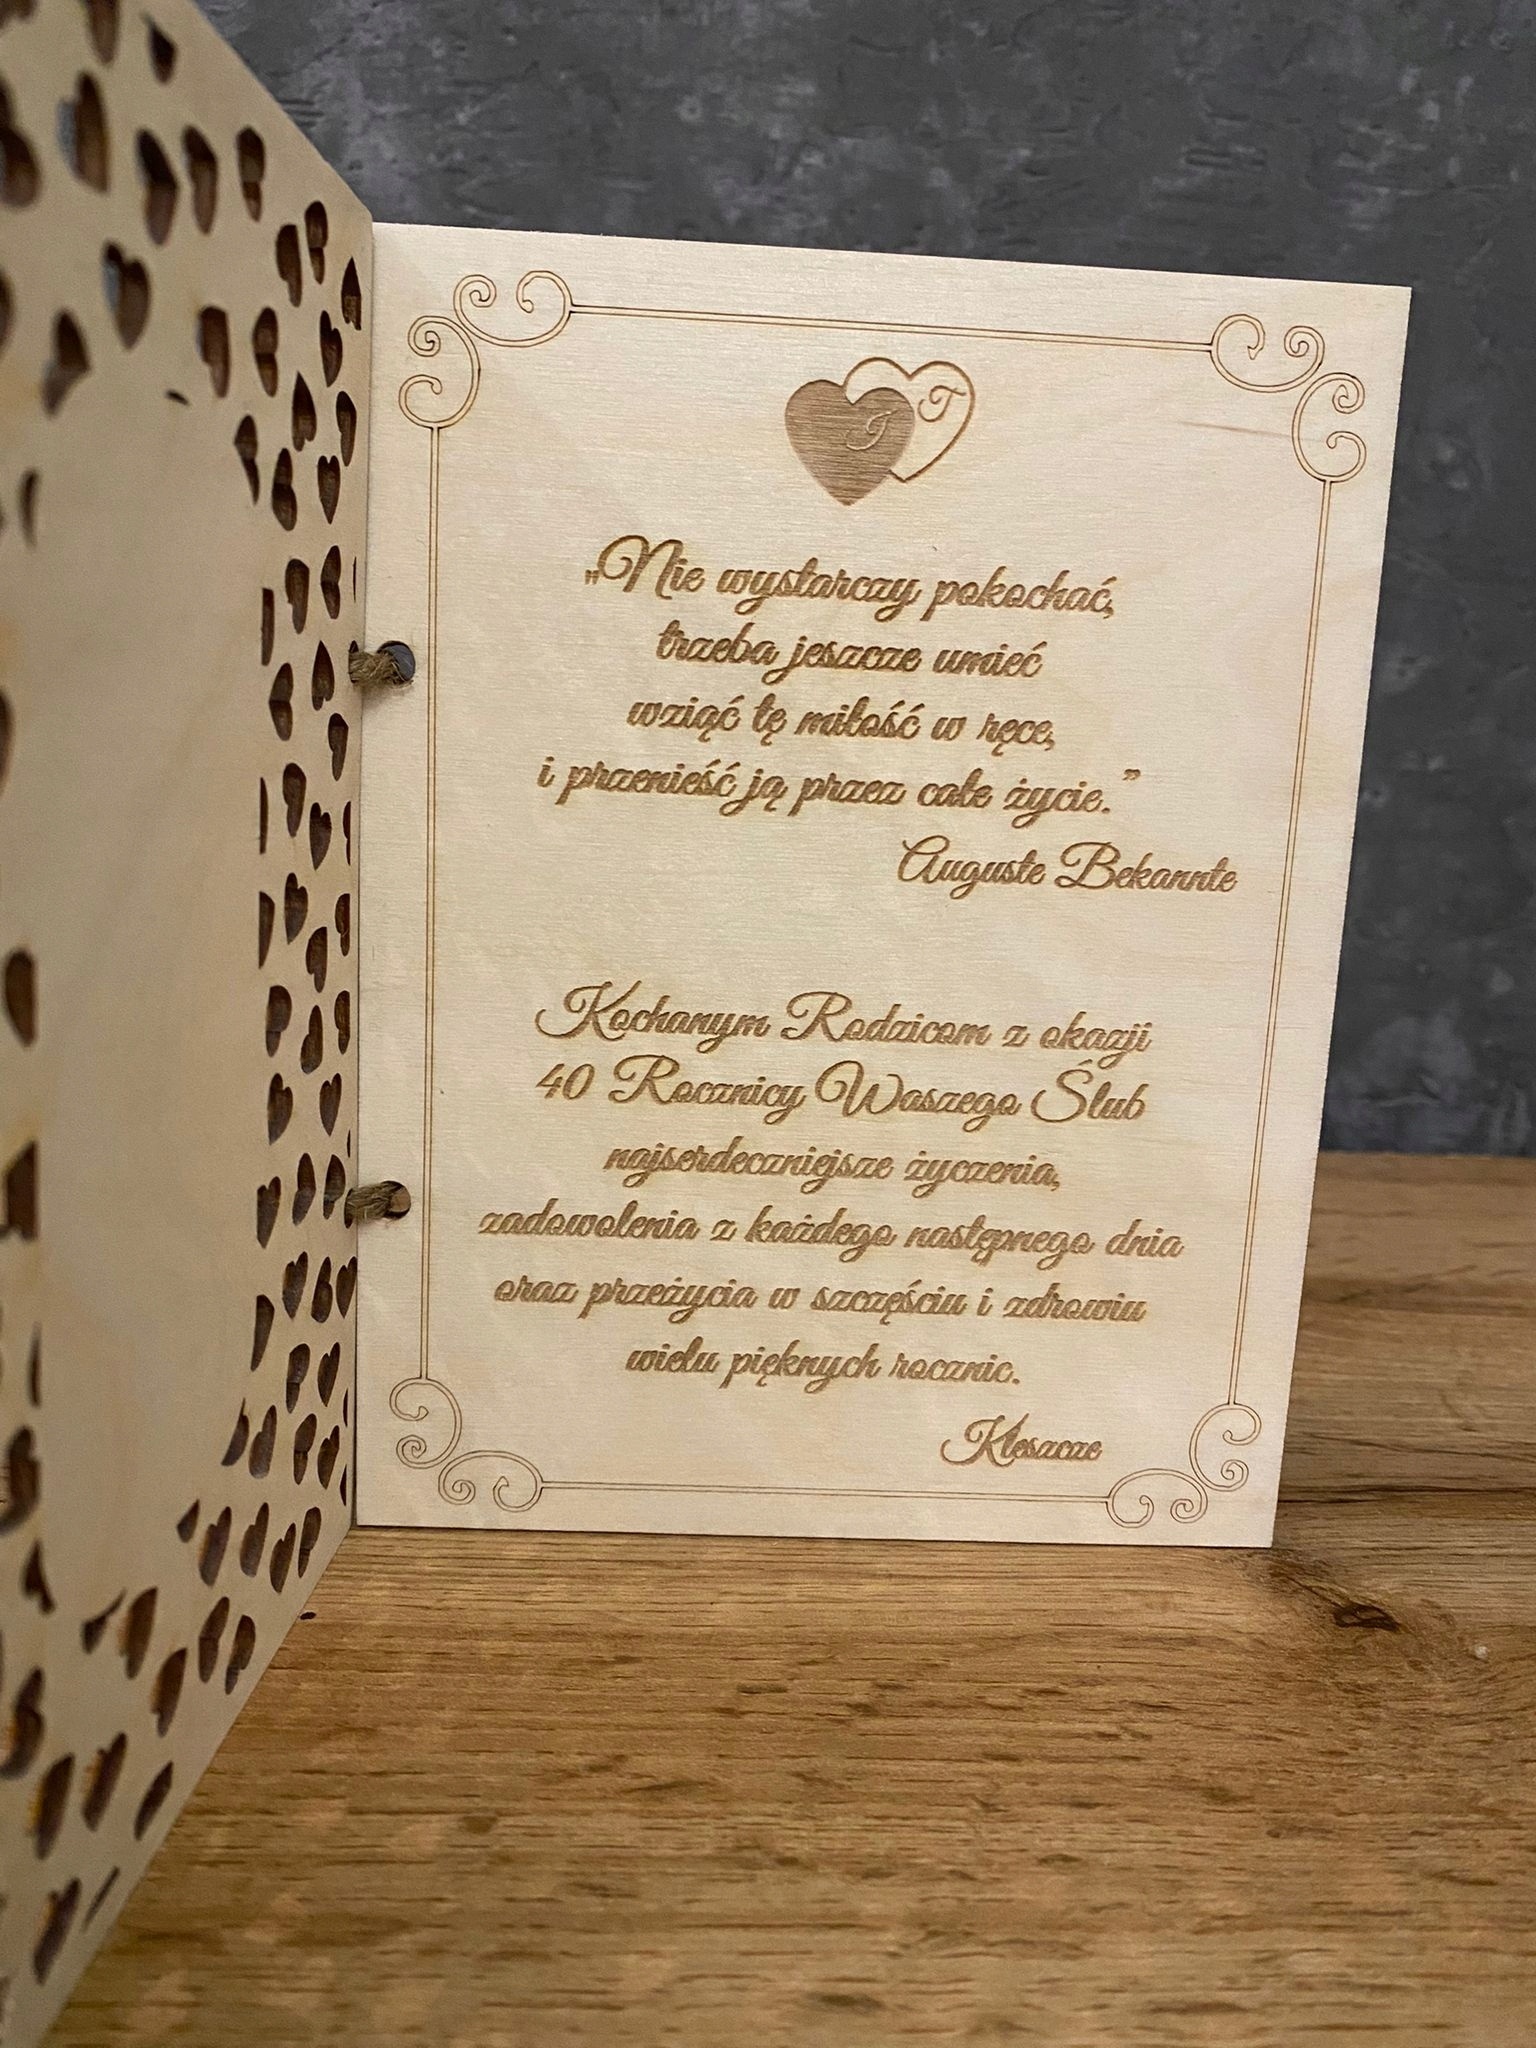 I T
„Nie wystarczy pokochać,
trzeba jeszcze umieć
wziąć tę miłość w ręce,
i przenieść ją przez całe życie.”
Auguste Bekannte
Kochanym Rodzicom z okazji
40 Rocznicy Waszego Ślub
najserdeczniejsze życzenia,
zadowolenia z każdego następnego dnia
oraz przeżycia w szczęściu i zdrowiu
wielu pięknych rocznic.
Kleszcze